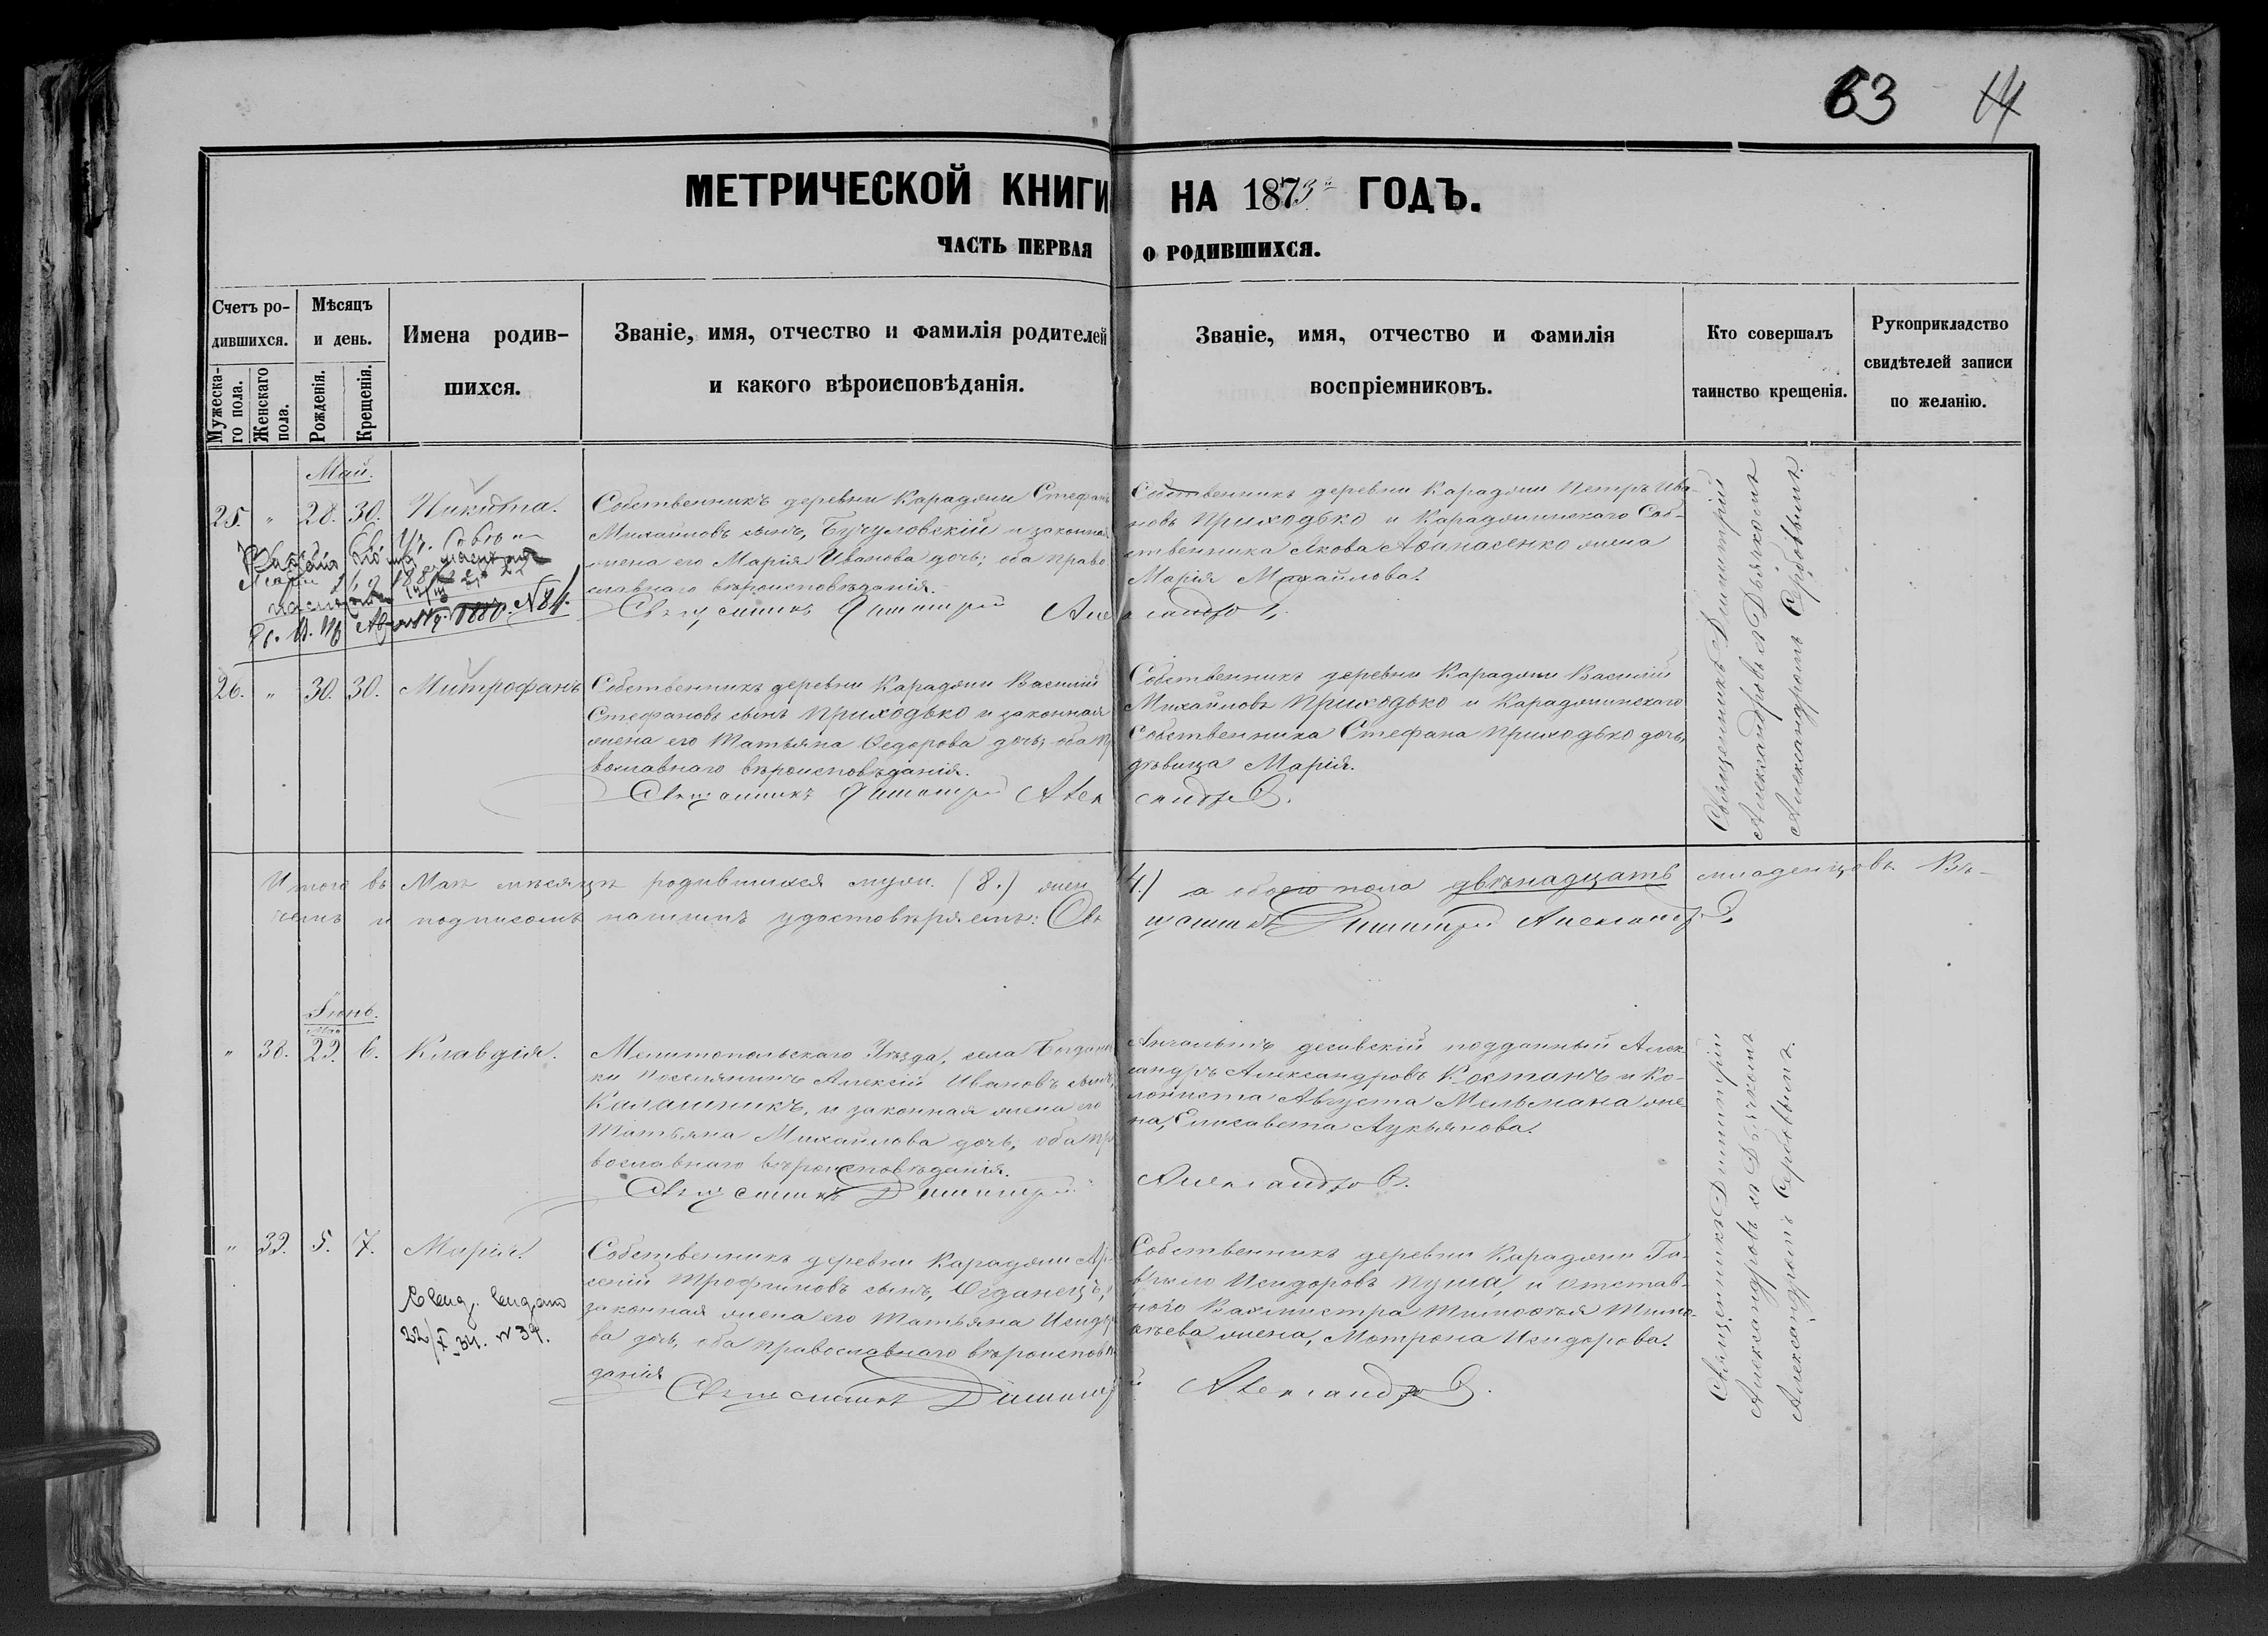 63 14
МЕТРИЧЕСКОЙ КНИГИ НА 1873й ГОДЪ.
ЧАСТЬ ПЕРВАЯ О РОДИВШИХСЯ.
Счетъ ро-
дившихся.
Мужеска-
го пола.
Женскаго
пола.
Мѣсяцъ
и день.
Рожденія.
Крещенія.
Имена родив-
шихся.
Званіе, имя, отчество и фамилія родителей
и какого вѣроисповѣданія.
Званіе, имя, отчество и фамилія
воспріемниковъ.
Кто совершалъ
таинство крещенія.
Рукоприкладство
свидѣтелей записи
по желанію.
Май.
25. " 28. 30. Никита.
Собственникъ деревни Караджи Стефанъ
Михайловъ сынъ, Бучуловскій и законная
жена его Марія Иванова дочь; оба право
славнаго вѣроисповѣданія.
Священникъ Димитрій Александровъ
Собственникъ деревни Караджи Петръ Ива-
новъ Приходько и Караджинскаго Соб-
ственника Якова Афанасенко жена
Марія Михайлова.
Священникъ Димитрій
Александровъ съ Дьячкомъ
Александромъ Сербовымъ.
№ 84.
26. " 30. 30. Митрофанъ
Собственникъ деревни Караджи Василій
Стефановъ сынъ Приходько и законная
жена его Татьяна Ѳедорова дочь, оба пр
вославнаго вѣроисповѣданія.
Священникъ Димитрій Александровъ.
Собственникъ деревни Караджи Василій
Михайловъ Приходько и Караджинскаго
Собственника Стефана Приходько дочь,
дѣвица Марія.
Итого въ Маѣ мѣсяцѣ родившихся муж. (8.) жен 4.) а обоего пола двѣнадцать младенцовъ. Въ
чемъ и подписомъ нашимъ удостовѣряемъ: Священникъ Димитрій Александровъ
Іюнь.
Мая
" 38. 29. 6. Клавдія.
Мелитопольскаго Уѣзда, села Богданов
ки поселянинъ Алексій Ивановъ сынъ,
Калашникъ, и законная жена его
Татьяна Михайлова дочь, оба пр
вославнаго вѣроисповѣданія.
Священникъ Димитрій Александровъ.
Ангальтъ десавскій подданный Алек-
сандръ Александровъ Костанъ и Ко-
лониста Августа Мельмана же-
на, Елисавета Лукьянова.
Священникъ Димитрій
Александровъ съ Дьячкомъ
Александромъ Сербовымъ.
" 39. 5. 7. Марія.
34. № 39.
Собственникъ деревни Караджи Ар
сеній Трофимовъ сынъ, Огданецъ, и
законная жена его Татьяна Исидо
ва дочь, оба православнаго вѣроисповѣ
данія
Священникъ Димитрій Александровъ.
Собственникъ деревни Караджи Га-
врило Исидоровъ Пуша, и отстав-
ного Вахмистра Тимоѳея Тимо-
ѳеева жена, Мотрона Исидорова.